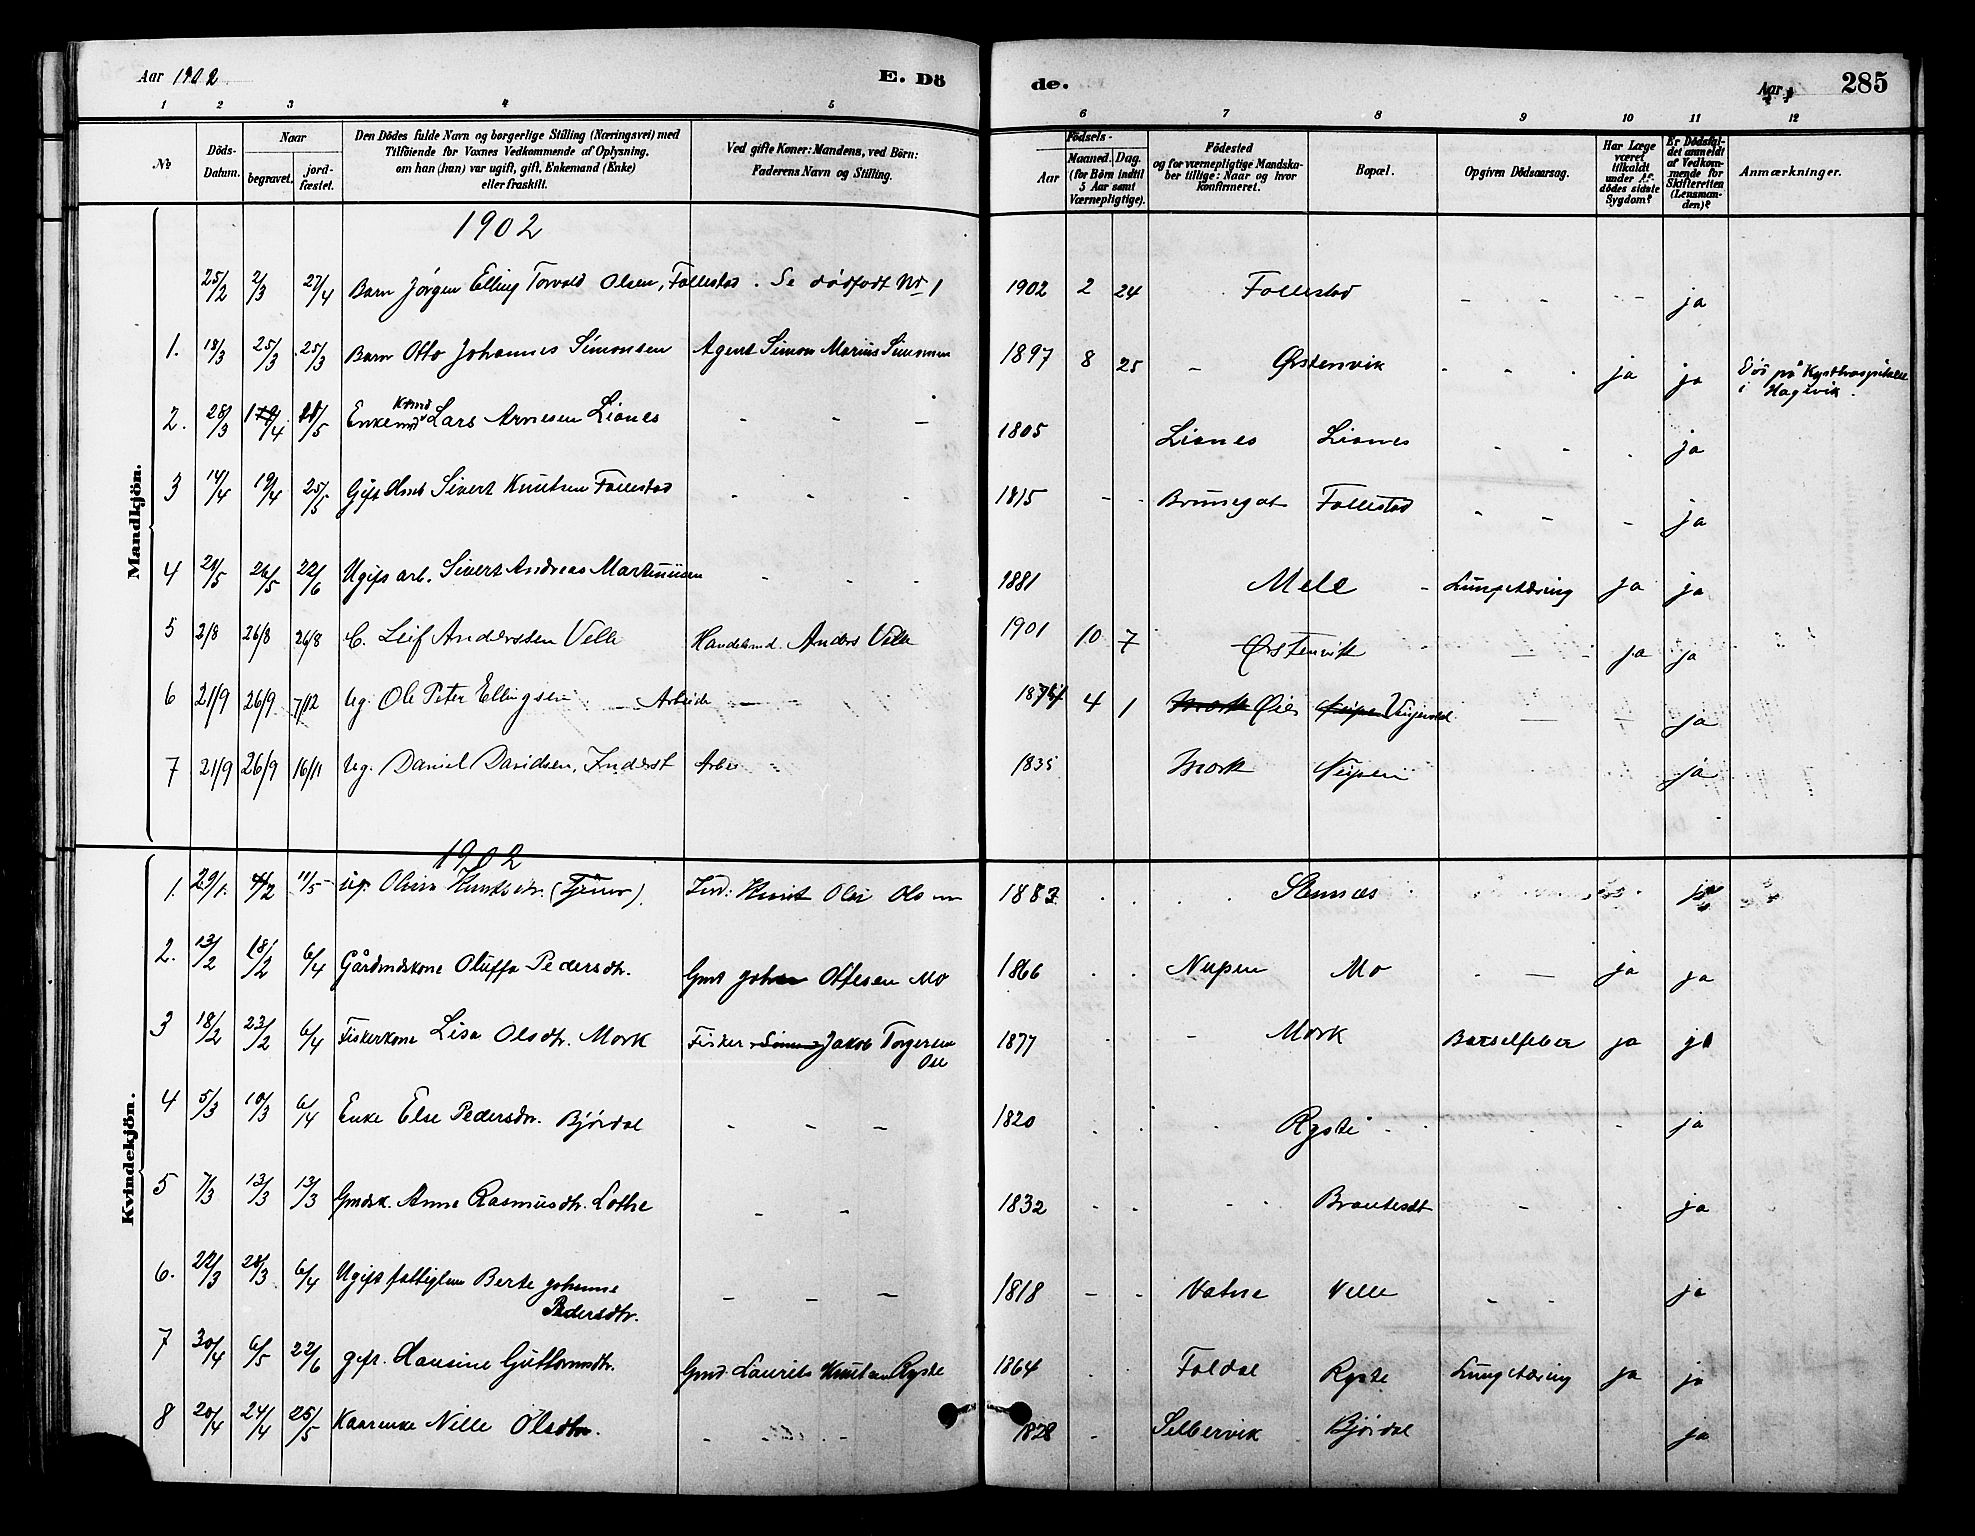 Aar 1902
E. Dö
de.
Aar
285
1 2 3 4 5 6 7 8 9 10 11 12
No
Döds-Datum.
Naar
begravet.
jord-fæstet.
Den Dödes fulde Navn og borgerlige Stilling (Næringsvei) med
Tilföiende for Voxnes Vedkommende af Oplysning,
om han (hun) var ugift, gift, Enkemand (Enke)
eller fraskilt.
Ved gifte Koner: Mandens, ved Börn:
Faderens Navn og Stilling.
Födsels-
Aar
Maaned. Dag.
(for Börn indtil
5 Aar samt
Værnepligtige).
Födested
og for værnepligtige Mandska-
ber tillige: Naar og hvor
konfirmeret.
Bopæl.
Opgiven Dödsaarsag.
Har Læge
været
tilkaldt
under Af-
dödes sidste
Sygdom?
Er Dödsfal-
det anmeldt
af Vedkom-
mende for
Skifteretten
(Lensman-
den)?
Anmærkninger.
Mandkjön.
1902
25/2 2/3 27/4 Barn Jörgen Elling Torvald Olsen, Follestad. Se dödfödt No 1 1902 2 24 Follestad - - - - ja
1. 18/3 25/3 25/3 Barn Otto Johannes Simonsen Agent Simon Marius Simonsen 1897 8 25 - Ørstenvik - - - ja ja Död på Kysthospitalet
i Hagevik.
2. 28/3 /4 /5 Enkemd Kaarmd Lars Arnesen Lianes - - - 1805 Lianes Lianes - - - ja
3 14/4 19/4 25/5 Gift Gmd Sivert Knutsen Follestad - - - 1815 - - Brunegot Follestad - - - ja
4 21/5 26/5 22/6 Ugift arb. Sivert Andreas Martinussen - - - 1881 Melle - Lungetæring ja ja
5 2/8 26/8 26/8 C. Leif Anderssen Velle Handelsmd. Anders Velle 1901 10 7 Ørstenvik - - - ja ja
6 21/9 26/9 7/12 Ug. Ole Peter Ellingsen - Arbeide - 187 4 1 Mork Øie - - ja
7 21/9 26/9 16/11 Ug. Daniel Davidsen, Inderst Arbei 1835 Mork Nupen ja
Kvindekjön.
1902
1. 29/1. 4/2 11/5 ug. Olivia Knutsdtr. (Tjener). Ind: Knut Olai Olsen 1883 Stennæs ja
2. 13/2 18/2 6/4 Gårdmdskone Oluffa Pedersdtr. Gmd Johan Ottesen Mo 1866 Nupen Mo - - ja ja
3 18/2 23/2 6/4 Fiskerkone Lisa Olsdtr. Mork Fisker Simon Jakob Torgersen
Ose 1877 - Mork Barselfeber ja ja
4 5/3 10/3 6/4 Enke Else Pedersdtr. Björdal - - - 1820 Ryste - - - ja
5 7/3 13/3 13/3 Gmdsk. Anne Rasmusdtr. Lothe - - 1832 Brautesdt - - ja
6. 22/3 28/3 6/4 Ugift fattiglem Berte Johanne
Pedersdtr. - - - 1818 - - Vatne Velle - - ja
7 30/4 6/5 22/6 gift. Hansine Guttormsdtr. Gmd. Laurits Knutsen Ryste 1864 Foldal Ryste Lungetæring ja ja
8 20/4 24/4 25/5 Kaarenke Nille Olsdtr. - - - 1828 - Selbervik Björdal ja